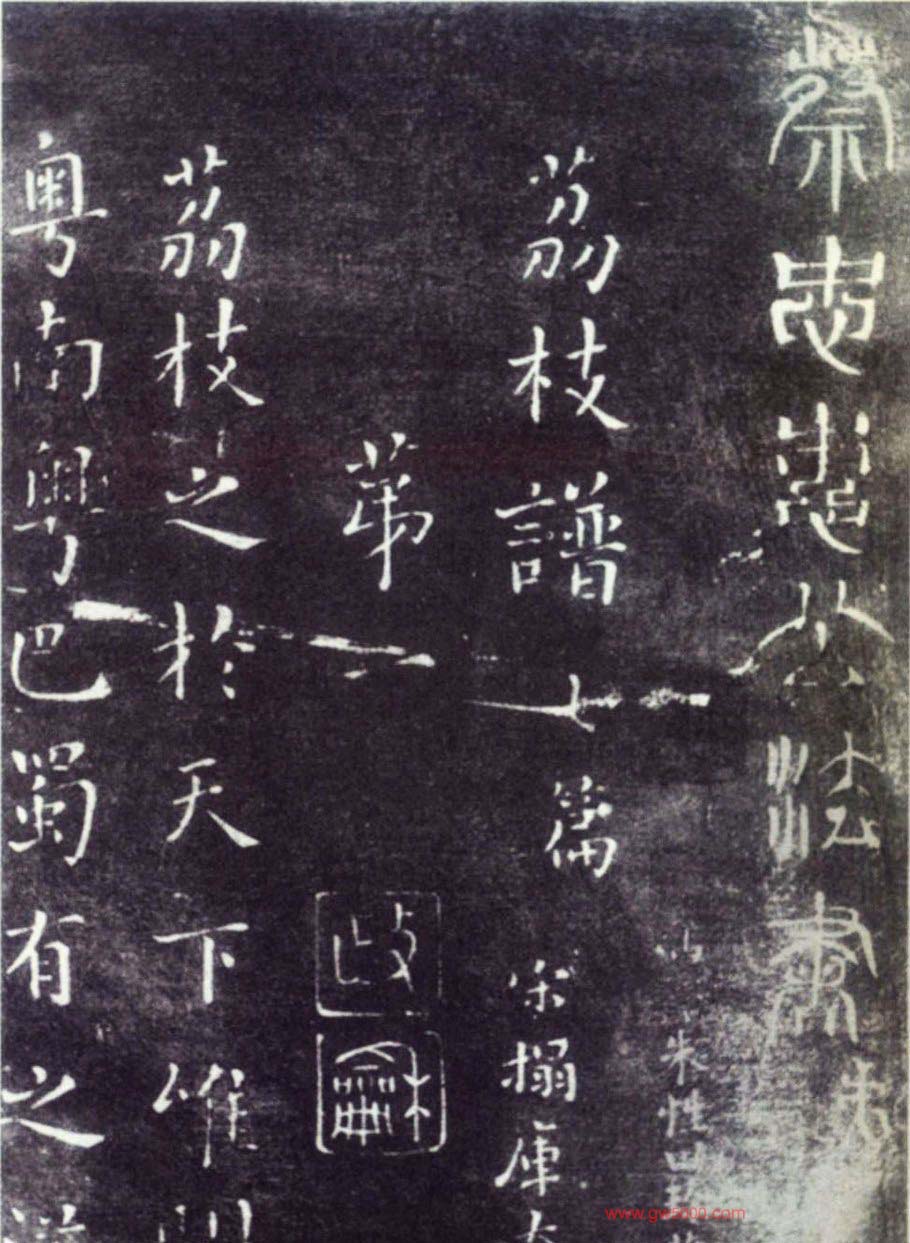 蔡忠惠公法書
荔枝譜七篇
宋搨庫
第一
荔枝之於天下唯閩
粵南粵巴蜀有之
www.gw5000.com